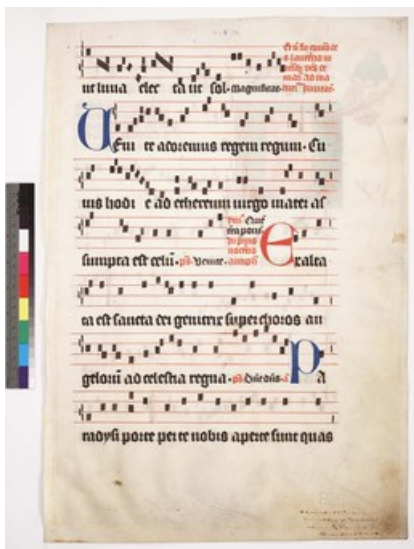 ut luna elec ta ut sol. magnificat.
Veni te adoremus regem regum. Cu
ius hodi e ad ethereum uirgo mater as
sumpta est celū. ps̄ Venite. Exalta
ta est sancta dei genitrix super choros an
gelorū ad celestia regna. ps̄ Dn̄e dn̄s. a Pa
radysi porte per te nobis aperte sunt quas